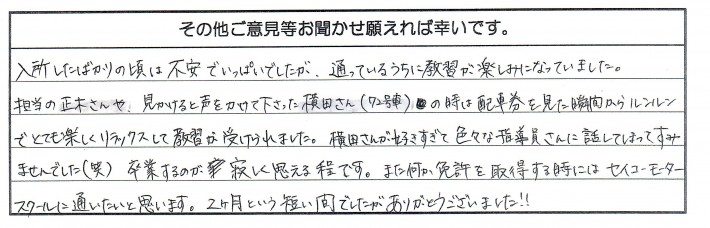 その他ご意見等お聞かせ願えれば幸いです。
入所したばかりの頃は不安でいっぱいでしたが、通っているうちに教習が楽しみになっていました。
担当の正木さんや、見かけると声をかけて下さった横田さん(72号車)の時は配車券を見た瞬間からルンルン
でとても楽しくリラックスして教習が受けられました。横田さんが好きすぎて色々な指導員さんに話してしまってすみ
ませんでした(笑) 卒業するのが寂しく思える程です。また何か免許を取得する時にはセイコーモーター
スクールに通いたいと思います。2ヶ月という短い間でしたがありがとうございました!!